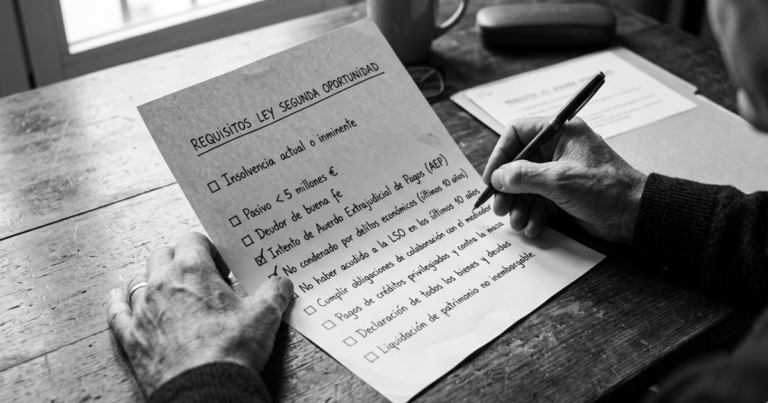 REQUISITOS LEY SEGUNDA OPORTUNIDAD
Insolvencia actual o inminente
Pasivo < 5 millones €
Deudor de buena fe
Intento de Averdo Extrajudicial de Pagos (AEP)
No condenado por delitos económicos (últimos 10 años)
No haber acudido a la LSO en los últimos 10 años
Cumplir obligaciones de colaboración con el mediador
Pagos de créditos privilegiados y contra la masa
Declaración de todos los bienes y deudas
Liquidación de patrimonio no inembargable